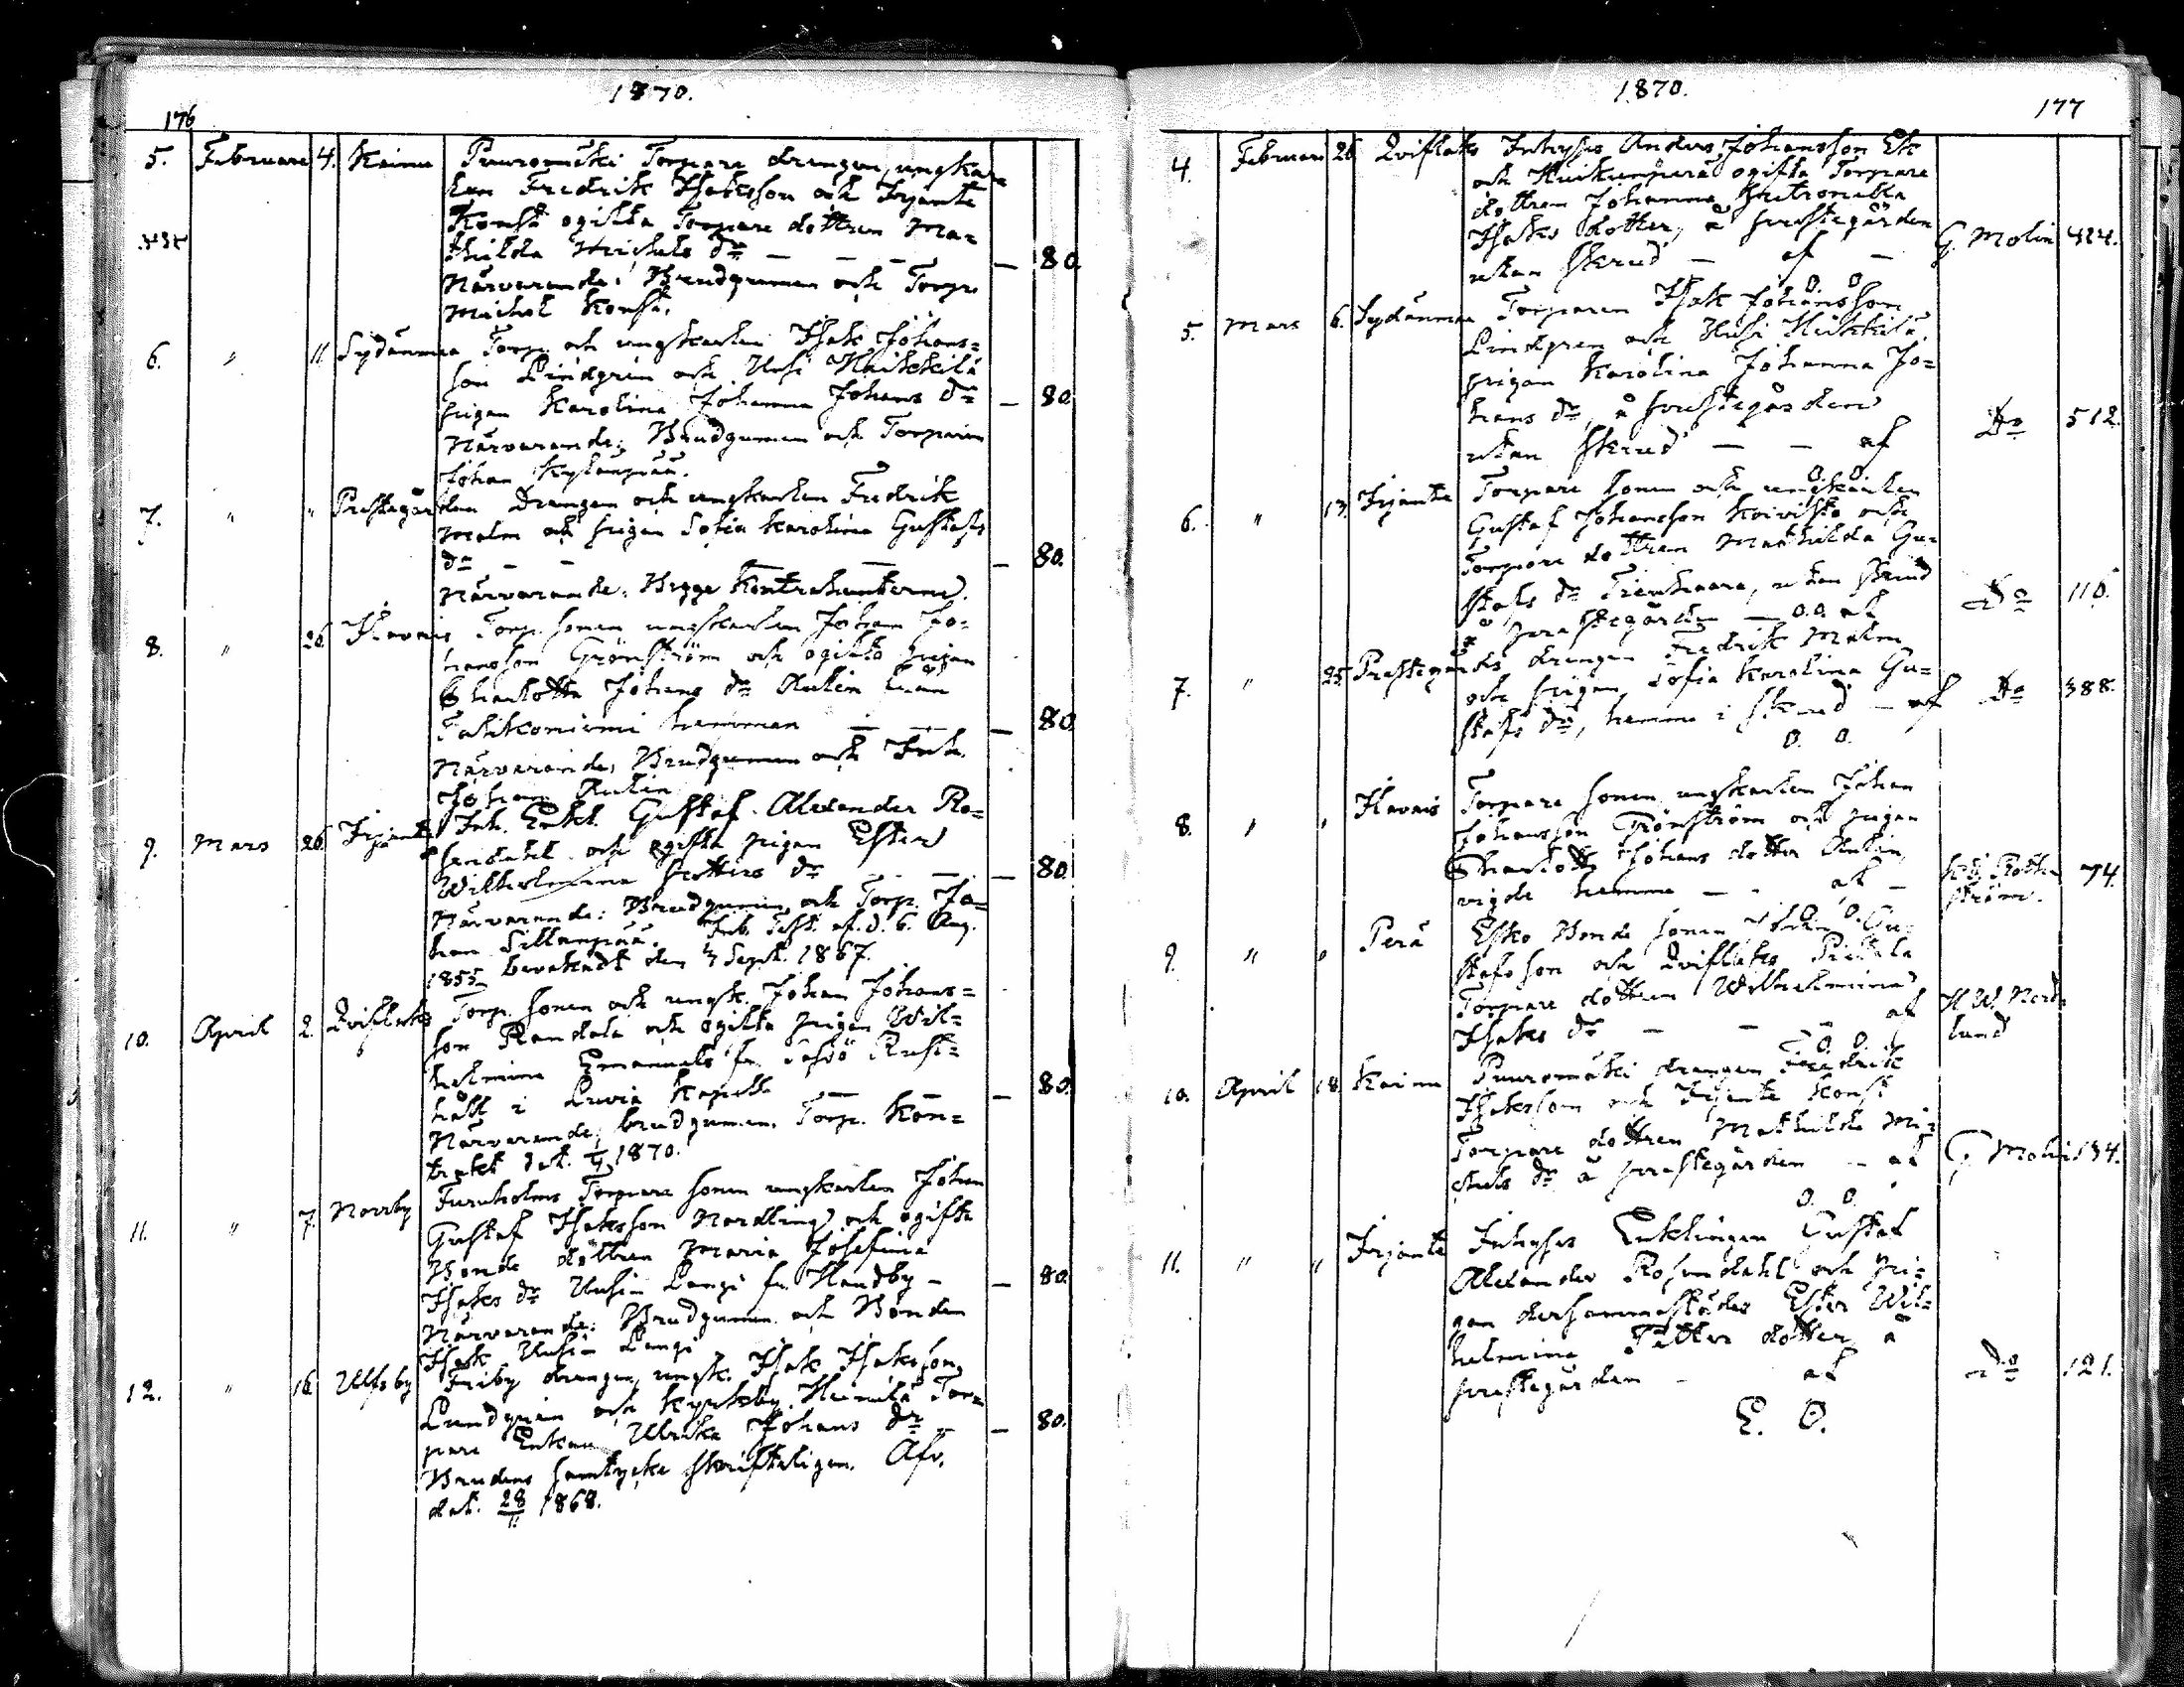 1870.
176
5. Februari 4. Kaimu Puuromäki Torpare drengen, ungkar-
len Fredrik Isaksson och Irjante
Konsti ogifta Torpare dottren Ma-
thilda Michels dr — — — — 80.
Närvarande: Brudgumen och Torp.
Michel Konsti.
6. " 11. Sydänmaa Torp. och ungkarlen Isak Johans=
son Lindgren och Uusi Heikkilä
pigan Karolina Johanna Johans dr — 80
Närvarande: Brudgumen och Torparen
Johan Kylänpää.
7. " " Prestegården Drengen och ungkarlen Fredrik
Malm och pigan Sofia Karolina Gustafs
dr — — — — — 80.
Närvarande: Begge Kontrahenterne.
8. " 26. Ilavais Torp. sonen ungkarlen Johan Jo-
hansson Grönström och ogifta pigan
Charlotta Johans dr Aulin från
hemman — — — 80.
Närvarande: Brudgumen och Inh.
Johan Aulin
9. Mars 26 Irjante Inh. Enkl. Gustaf Alexander Ro-
sendahl och ogifta pigan Ester
Wilhelmina Petters dr — — 80.
Närvarande: Brudgumen, och Torp. Jo=
han Sillanpää. Inb. Test. af d. 6. Aug.
1855 bevakadt den 7 Sept. 1867.
10. April 2. Qviflaks Torp. sonen och ungk. Johan Johans=
son Randala och ogifta pigan Wil=
helmina Emanuels fr.
håll i Luvia Kapell — — — 80.
Närvarande: brudgumen. Torp. Kon=
trakt dat. 1870.
11. " 7. Norrby Furuholms Torpare sonen ungkarlen Johan
Gustaf Isaksson Nordling och ogifta
Bonde dottren Maria Josefina
Isaks dr Uusi- Langi fr. Handby — — 80.
Närvarande: Brudgumen och Bonden
Isak Uusi- Langi
12. " 16 Ulfsby Friby drengen, ungk. Isak Isaksson
Lundgren och Kyrkeby Heinilä Tor=
pare Enkan Ulrika Johans dr — — 80.
Brudens samtycke skriftligen. Afv.
dat. 28/11 1868.
1870.
177
4. Februari 26. Qviflaks Inhyses Anders Johansson Ek
och ogifta Torpare
dottren Johanna Petronella
Isaks dotter, å prestegården
utan skrud — af — G. Molin 424.
O. O.
5. Mars 6. Sydänmaa Torparen Isak Johansson
Lindgren och Uusi Heikkilä
pigan Karolina Johanna Jo=
hans dr, å prestegården
utan skrud — — af Do 512.
O. O.
6. " 13. Irjante Torpare sonen och ungkarlen
Gustaf Johansson Koivisto och
Torpare dottren Mathilda Gu-
stafs dr Tienhaara, utan skrud
å prestegården — O. O. af Do 110.
7. " 25. Prestegårds drengen Fredrik Malm
och pigan Sofia Karolina Gu=
stafs dr, hemma i skrud — af Do 388.
O. O.
8. " " Ilavais Torpare sonen ungkarlen Johan
Johansson Grönström och pigan
Charlotta Johans dotter Aulin,
vigde hemma — — af — 74.
ström.
O. O.
9. " " Perä Esko Bonde sonen Johan Gu-
stafsson och Qviflaks
Torpare dottren Wilhelmina
Isaks dr — — — af H W. Nord-
lund
O. O.
10. April 18. Kaimu Puuromäki drengen Fredrik
Isaksson och Irjante Konsti
Torpare dottren Mathilda Mi-
chels dr å prestegården — af G. Molin 134.
O. O.
11. " " Irjante Inhyses Enklingen Gustaf
Alexander Rosendahl och pi-
gan dersammastädes Ester Wil-
helmina Petters dotter å
prestegården — af Do 121.
E. O.